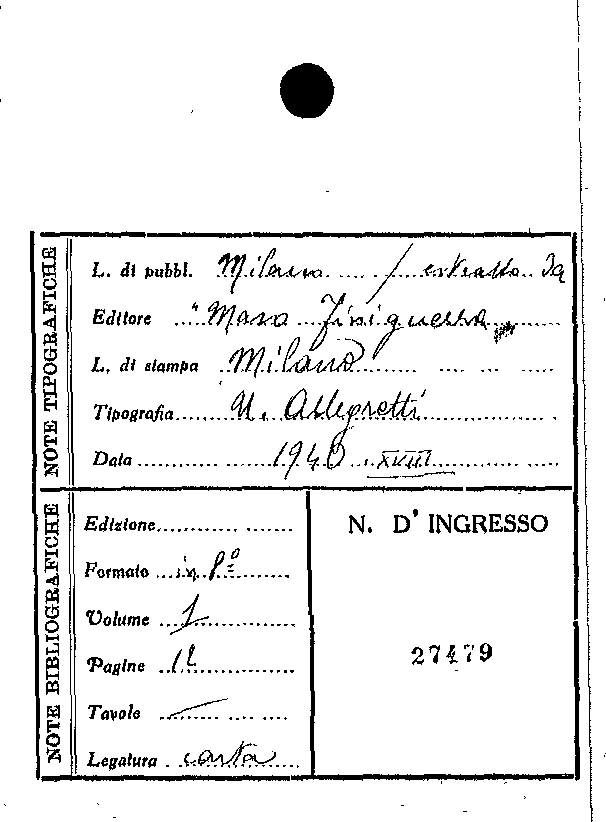 NOTE TIPOGRAFICHE
L. di pubbl. Milano / estratto da
Editore "Maso Finiguerra
L. di stampa Milano
Tipografia U. Allegretti
Data 1940 XVIII
NOTE BIBLIOGRAFICHE
Edizione
Formato in 8º
Volume 1
Pagine
Tavole —
Legatura carta
N. D' INGRESSO
27479